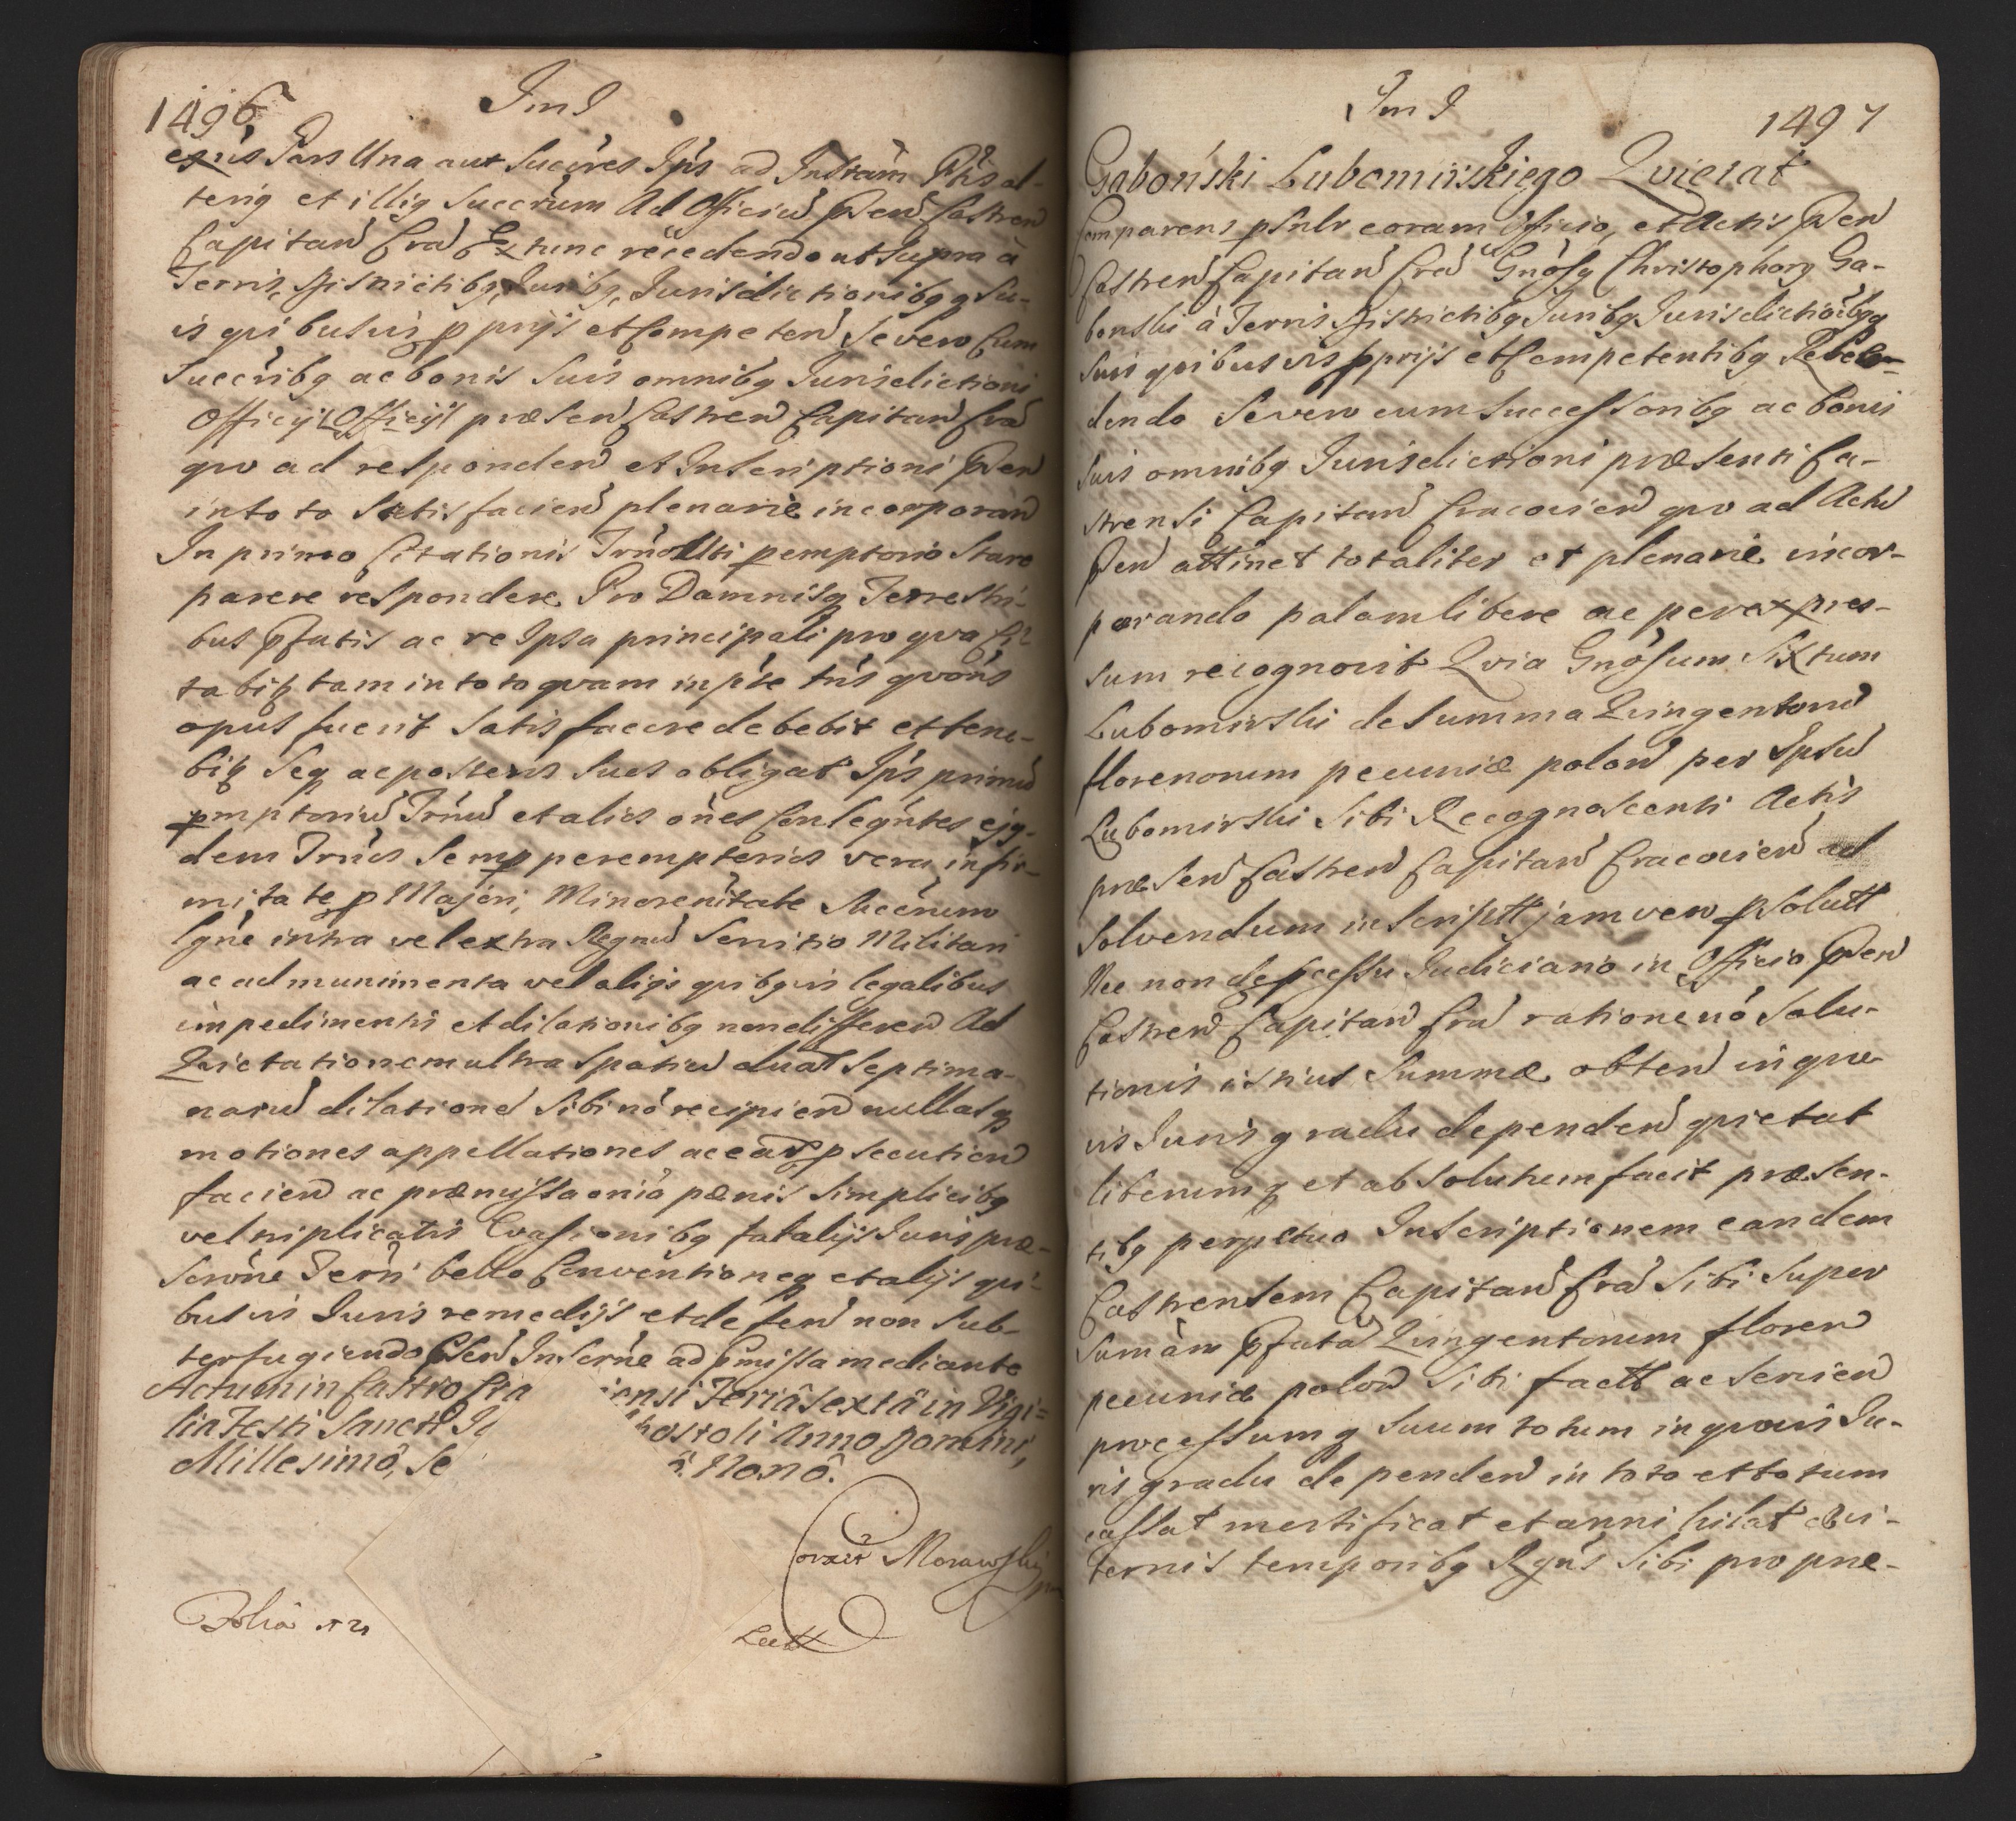 1496
Jm J
ejus Pars Una aut Succres Ips ad Instam Ptis al-
terig et illig Succrum Ad Officiu Pden Castren
Capitan Cra Extunc recedendo ut Supra à
Terris, Districtibg, Juribg, Jurisdictionibgq Su-
is quibusvis pprijs et Competen Severo Cum
Succribg ac bonis Suis omnibg Jurisdictioni
Officijl Officijl præsen Castren Capitan Cra
quo ad responden et Inscriptioni Pden
in toto Satisfacien plenarie incorporan
In primo Citationis Trno Uti pemptorio Stare
parere respondere Pro Damnisq Terrestri-
bus Pfatis ac re Ipsa principali pro qva Ci-
tabit tam in toto qvam in pte tns qvons
opus fuerit Satisfacere debebit et tene-
bit Seq ac posteros Suos obligat Ips primu
pmptoriu Trnu et alios ones Conseqntes ejg-
dem Trnos Semp peremptorios vera infir-
mitate p Majori, Minorenitate Succrum
Ign̄e intra vel extra Regnu Servitio Militari
ac ad munimenta vel aligs quibgvis legalibus
impedimentis et dilationibg non differen Ad
Quietationem ultra Spatiu duar Septima-
naru dilatione Sibi nò recipien nullasq
motiones appellationes ac ear psecution
facien ac præmissa onia pænis Simplicibg
vel triplicatis Evasionibg fatalijs Juris præ-
Scrone Terri bello Conventioneq et alijs qui-
busvis Juris remedijs et defen non Sub-
terfugiendo Psen Inscrne ad Pmissa mediante
Actum in Castro Cra iensi Feriâ Sextâ in Vigi=
lia Festi Sancti J postoli Anno Domini,
Millesimô, Se â Nonô.
Morawski
Foliâ
Lectt
Jm J
1497
Gaboński Lubomirskiego Qvietat
Comparens psnlr coram Officio, et Actis Pden
Castren Capitan Cra Gnosg Christophorg Ga-
bonski à Terris Districtibg Juribg Jurisdictioibgq
Suis quibusvis pprijs et Competentibg Rece-
dendo Severo cum Successoribg ac bonis
Suis omnibg Jurisdictioni præsenti Ca-
strensi Capitan Cracovien quo ad Actu
Pden attinet totaliter et plenarie incor-
porando palam libere ac per expres-
sum recognovit Qvia Gnosum Sixtum
Lubomirski de Summa Quingentoru
florenorum pecuniæ polon per Ipsu
Lubomirski Sibi Recognoscenti Actis
præsen Castren Capitan Cracovien ad
Solvendum inscriptt jam vero psolutt
Nec non de pcessu Judiciario in Officio Pden
Castren Capitan Cra ratione nò Solu-
tionis istius Summæ obten in quo-
vis Juris gradu dependen quietat
liberumq et absolutum facit præsen-
tibg perpetuo Inscriptionem eandem
Castrensem Capitan Cra Sibi Super
Sumam Pfata Quingentorum floren
pecuniæ polon Sibi factt ac Servien
processumq Suum totum in quovis Ju-
ris gradu dependen in toto et totum
cassat mortificat et annihilat ævi-
ternis temporibg Rgns Sibi pro præ-